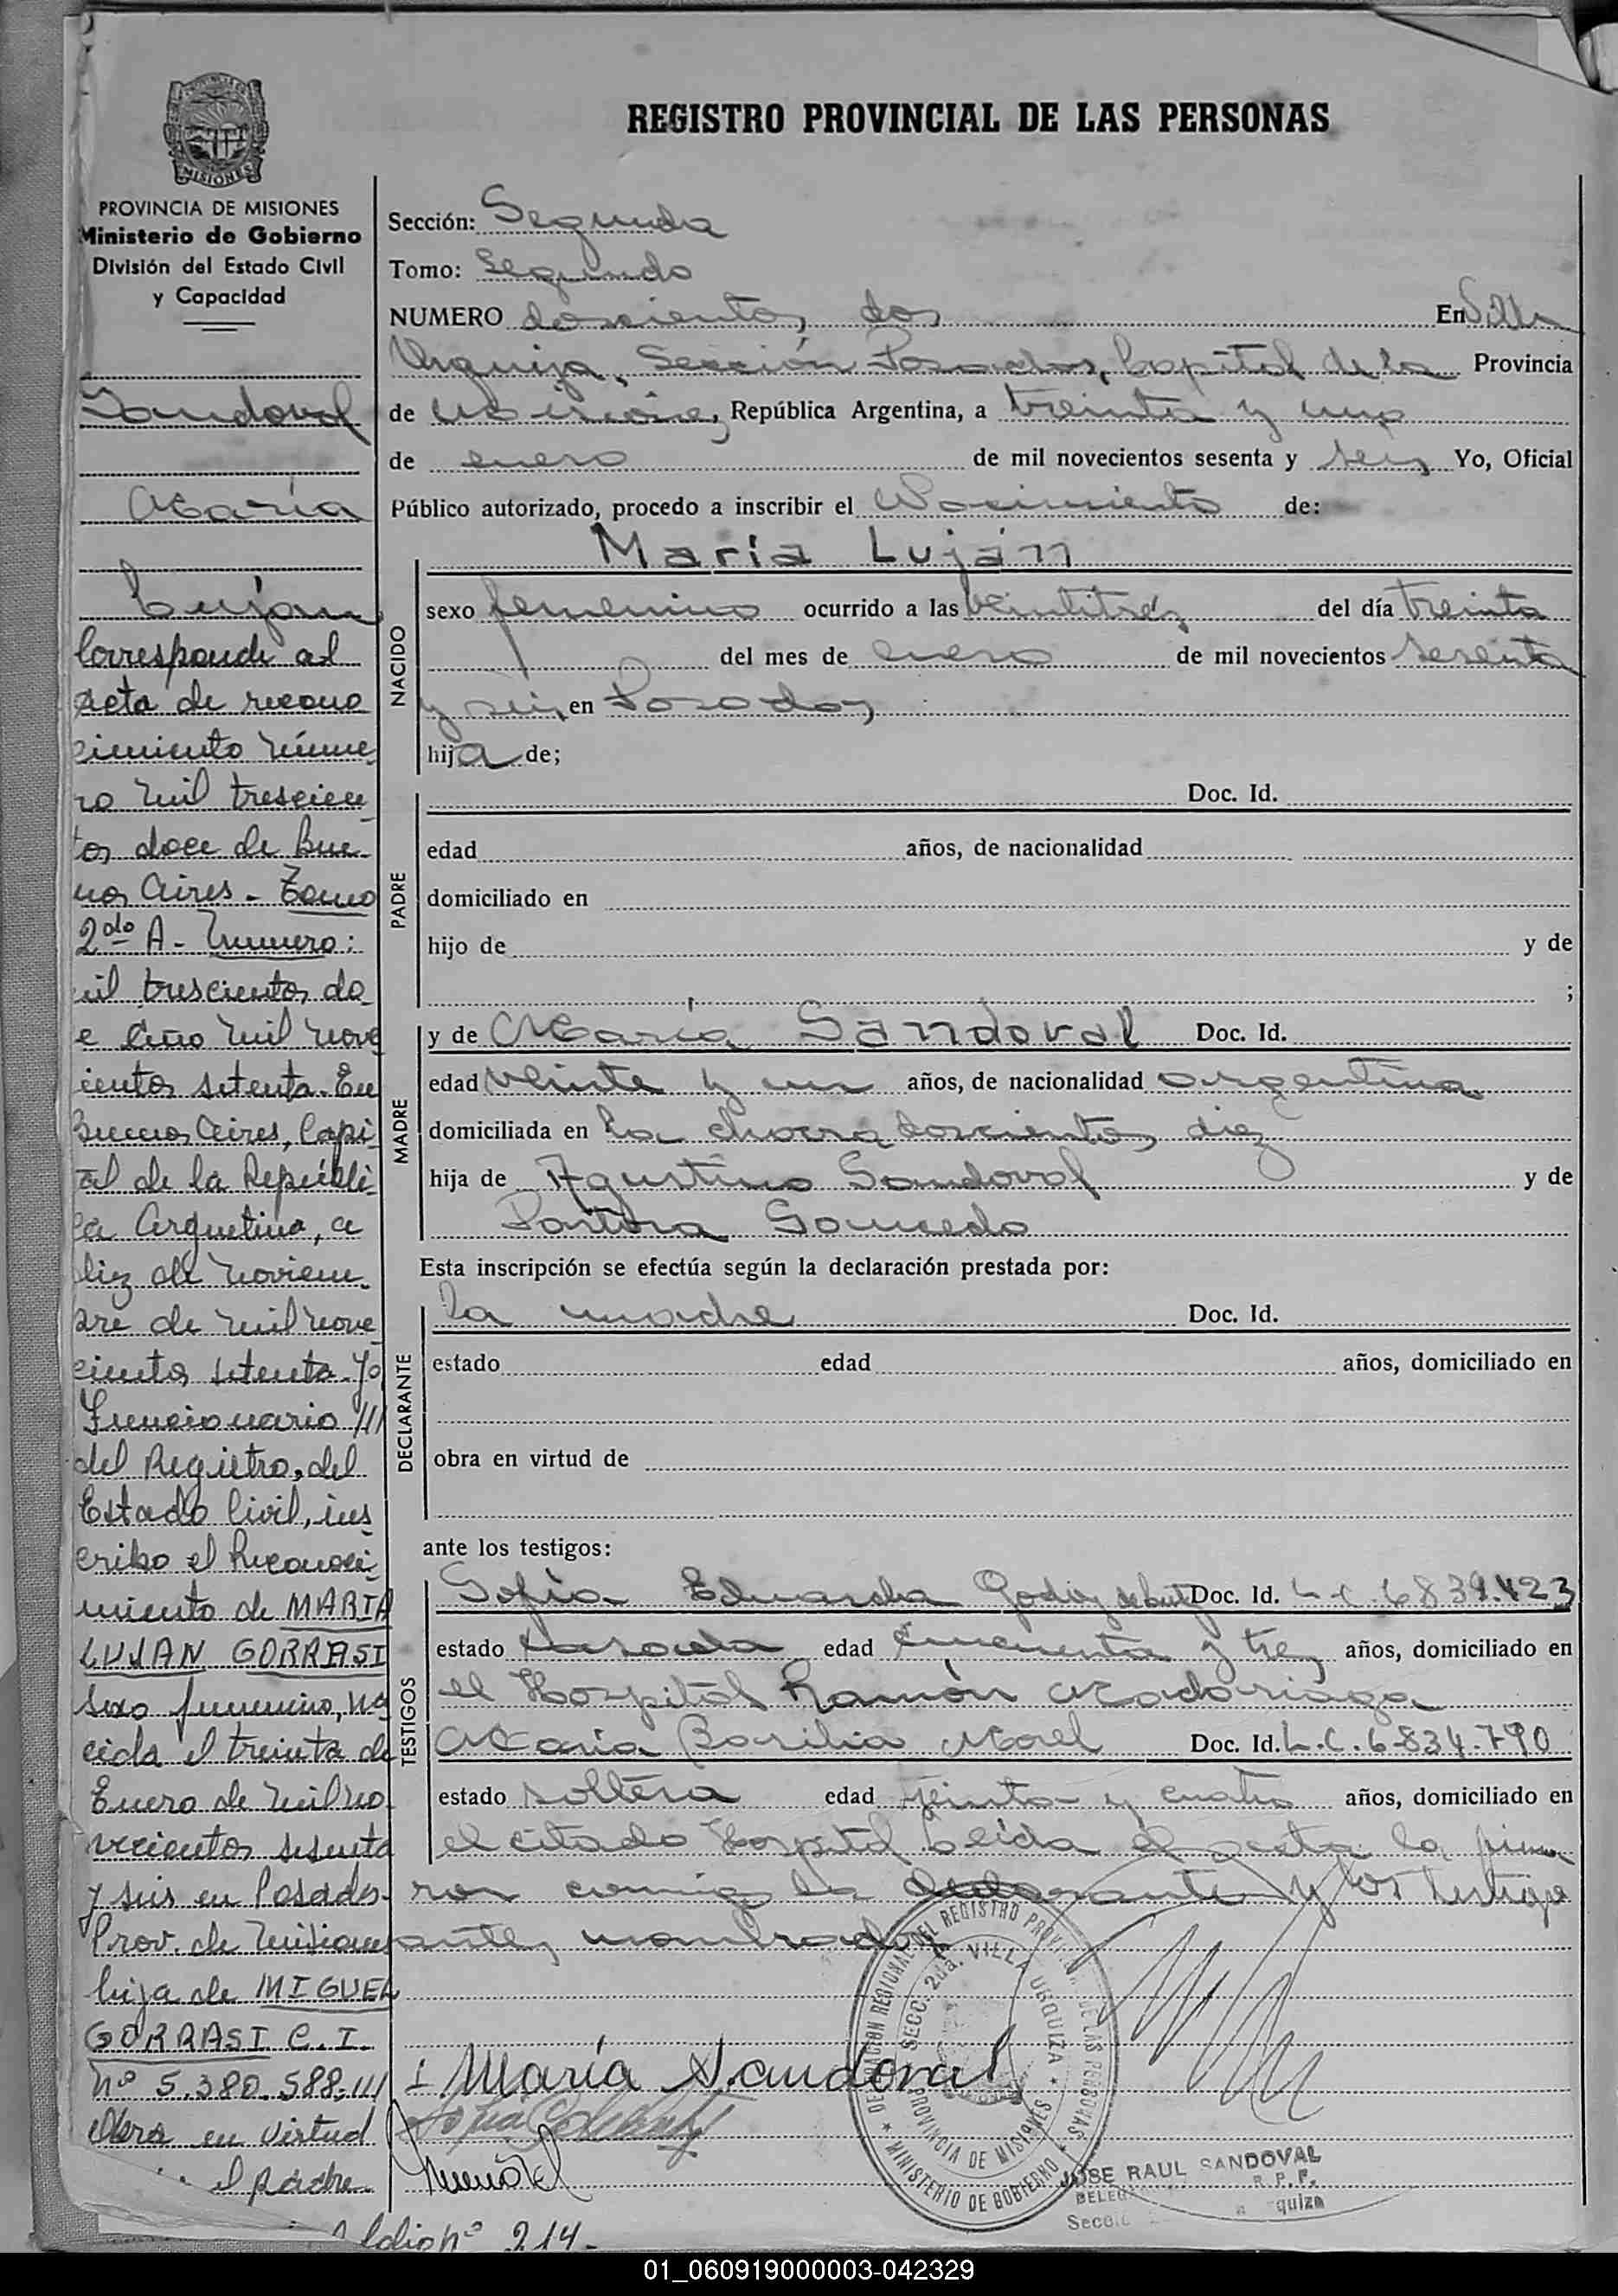 MISIONES
PROVINCIA DE MISIONES
Ministerio de Gobierno
División del Estado Civil
y Capacidad
Sandoval
María
Luján
Corresponde al
acta de recono
cimiento núme
ro mil trescien
tos doce de Bue-
nos Aires - Tomo
2do A - Número:
mil trescientos do
e Año mil nove
cientos setenta. En
Buenos Aires, Capi
tal de la Repúbli
ca Argentina, a
diez de noviem
bre de mil nove
cientos setenta. Yo
Funcionario ///
del Registro del
Estado Civil, ins
cribo el Reconoci
miento de MARIA
LUJAN GORRASI
sexo femenino, na
cida el treinta de
Enero de mil no
vecientos sesenta
y seis en Posadas
Prov. de Misiones
hija de MIGUEL
GORRASI C.I.
Nº 5.380.588.///
Obra en virtud
el padre
folio nº 214.-
REGISTRO PROVINCIAL DE LAS PERSONAS
Sección: Segunda
Tomo: Segundo
NUMERO doscientos dos En Villa
Urquiza, Sección Posadas, Capital de la Provincia
de Misiones, República Argentina, a treinta y uno
de enero de mil novecientos sesenta y seis Yo, Oficial
Público autorizado, procedo a inscribir el Nacimiento de:
María Luján
NACIDO
sexo femenino ocurrido a las veintitrés del día treinta
del mes de enero de mil novecientos sesenta
y seis, en Posadas
hija de;
PADRE
Doc. Id.
edad años, de nacionalidad
domiciliado en
hijo de y de
;
MADRE
y de María Sandoval Doc. Id.
edad veinte y un años, de nacionalidad argentina
domiciliada en la chacra doscientos diez
hija de Agustino Sandoval y de
Pastora Saucedo
Esta inscripción se efectúa según la declaración prestada por:
DECLARANTE
la madre Doc. Id.
estado edad años, domiciliado en
obra en virtud de
ante los testigos:
TESTIGOS
Sofía Eduarda Godoy de Doc. Id. L.C. 6839.423
estado casada edad cincuenta y tres años, domiciliado en
el Hospital Ramón Madariaga
María Basilia Morel Doc. Id. L.C. 6.834.790
estado soltera edad treinta y cuatro años, domiciliado en
el citado Hospital Leída el acta la firma
ron conmigo la declarante y los testigo
antes nombrados
María Sandoval
DELEGACION REGIONAL DEL REGISTRO PROVINCIAL DE LAS PERSONAS
SECC. 2da. VILLA URQUIZA
PROVINCIA DE MISIONES
MINISTERIO DE GOBIERNO
JOSE RAUL SANDOVAL
R. P. P.
01_060919000003-042329